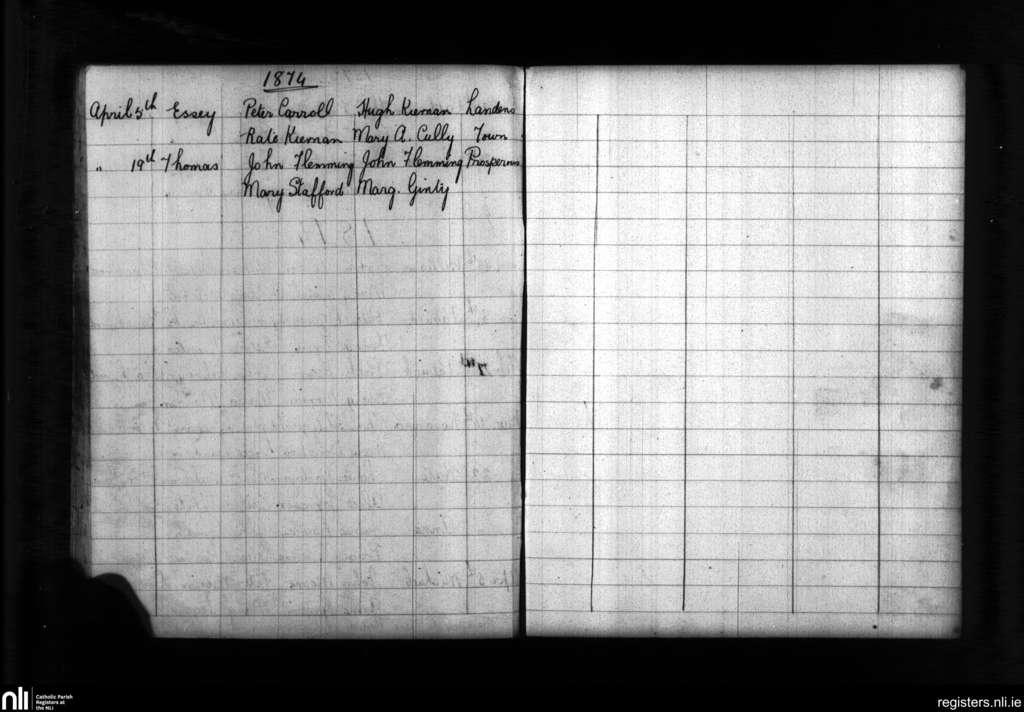 1874
April 5th Essey Peter Carroll Hugh Kiernan Landens
Kate Kiernan Mary A. Cully Town
" 19th Thomas John Flemming John Flemming Prosperous
Mary Stafford Marg. Ginty
nli Catholic Parish
Registers at
the NLI
registers.nli.ie